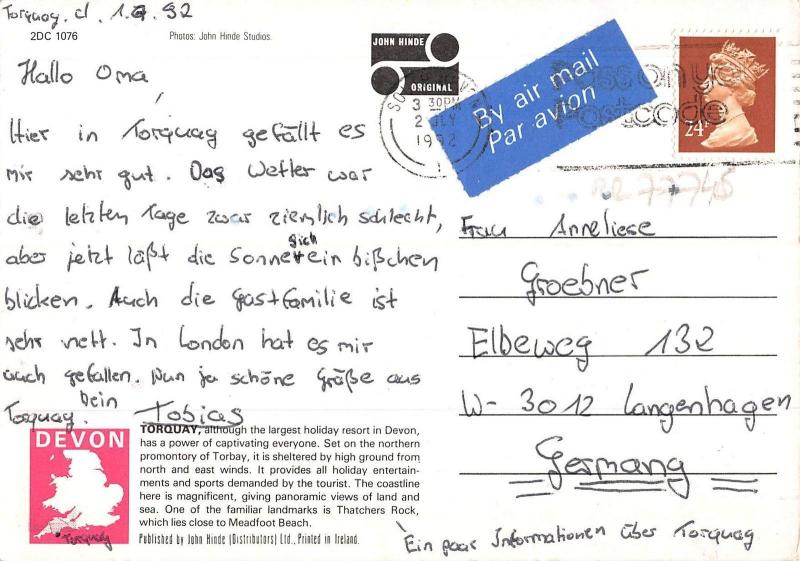 Torquay, d. 1.7.92
2DC 1076
Photos: John Hinde Studios.
Hallo Oma,
Hier in Torquay gefällt es
mir sehr gut. Das Wetter war
die letzten Tage zwar ziemlich schlecht,
aber jetzt läßt die Sonne sich ein bißchen
blicken. Auch die Gastfamilie ist
sehr nett. In London hat es mir
auch gefallen. Nun ja schöne Grüße aus
Torquay. Dein Tobias
JOHN HINDE
ORIGINAL
3 30PM
2 JLY
1992
By air mail
Par avion
Pass on your
Postcode
24
Frau Anneliese
Groebner
Elbeweg 132
W-3012 Langenhagen
Germany
DEVON
Torquay
TORQUAY, although the largest holiday resort in Devon,
has a power of captivating everyone. Set on the northern
promontory of Torbay, it is sheltered by high ground from
north and east winds. It provides all holiday entertain-
ments and sports demanded by the tourist. The coastline
here is magnificent, giving panoramic views of land and
sea. One of the familiar landmarks is Thatchers Rock,
which lies close to Meadfoot Beach.
Published by John Hinde (Distributors) Ltd., Printed in Ireland.
Ein paar Informationen über Torquay